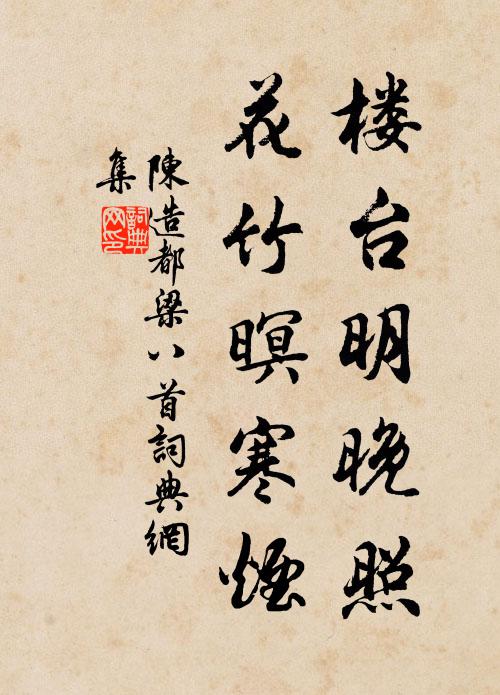 楼台明晚照
花竹暝寒煙
陳造都梁八首詞典網
集
詞典
网印